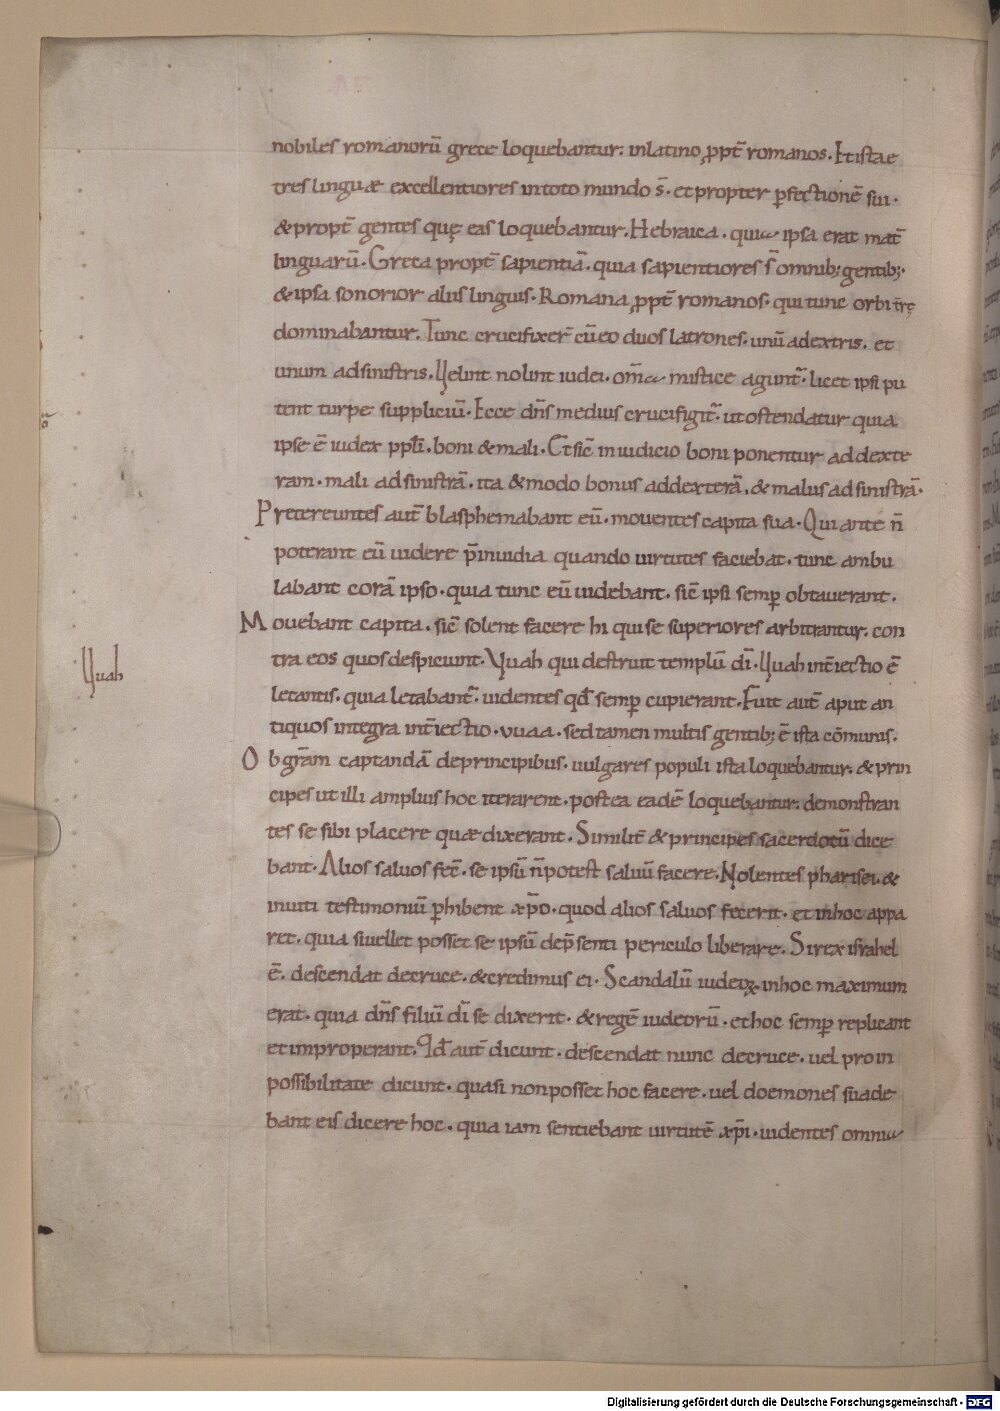 nobiles romanorū grece loquebantur. inlatino ꝓpt̄ romanos. Et istae
tres linguæ excellentiores intoto mundo s̄. et propter ꝑfectionē sui.
& propt̄ gentes quę eas loquebantur. Hebraica. quia ipsa erat mat̄
linguarū. Greca propt̄ sapientiā. quia sapientiores s̄ omnib; gentib;.
& ipsa sonorior aliis linguis. Romana ꝓpt̄ romanos. qui tunc orbi tr̄ę
dominabantur. Tunc crucifixer̄ cū eo duos latrones. unū adextris. et
unum adsinistris. Velint nolint iudei. om̄a mistice agunt̄. licet ipsi pu
tent turpe suppliciū. Ecce dn̄s medius crucifigit̄. ut ostendatur quia
ipse ē iudex ppl̄i. boni & mali. Et sic̄ in iudicio boni ponentur addexte
ram. mali adsinistrā. ita & modo bonus addexterā. & malus adsinistrā.
Pretereuntes aut̄ blasphemabant eū. mouentes capita sua. Qui ante n̄
poterant eū uidere p̄ inuidia quando uirtutes faciebat. tunc ambu
labant corā ipso. quia tunc eū uidebant. sic̄ ipsi semꝑ obtauerant.
Mouebant capita. sic̄ solent facere hi qui se superiores arbitrantur. con
tra eos quos despiciunt. Vuah qui destruit templū dī. Vuah int̄iectio ē
letantis. quia letabant̄. uidentes qd̄ semꝑ cupierant. Fuit aut̄ aput an
tiquos integra int̄iectio. vuaa. sed tamen multis gentib; ē ista cōmunis.
Ob gr̄am captandā deprincipibus. uulgares populi ista loquebantur. & prin
cipes ut illi amplius hoc iterarent. postea eadē loquebantur. demonstran
tes se sibi placere quæ dixerant. Similit̄ & principes sacerdotū dice
bant. Alios saluos fec̄. se ipsū n̄ potest saluū facere. Nolentes pharisei. &
inuiti testimoniū ꝑhibent xp̄o. quod alios saluos fecerit. et inhoc appa
ret. quia si uellet posset se ipsū dep̄senti periculo liberare. Si rex israhel
ē. descendat decruce. & credimus ei. Scandalū iudeoꝝ inhoc maximum
erat. quia dn̄s filiū dī se dixerit. & regē iudeorū. et hoc semꝑ replicant
et improperant. Qd̄ aut̄ dicunt. descendat nunc decruce. uel pro in
possibilitate dicunt. quasi non posset hoc facere. uel doemones suade
bant eis dicere hoc. quia iam sentiebant uirtutē xp̄i. uidentes omnia
Vuah
Digitalisierung gefördert durch die Deutsche Forschungsgemeinschaft - DFG